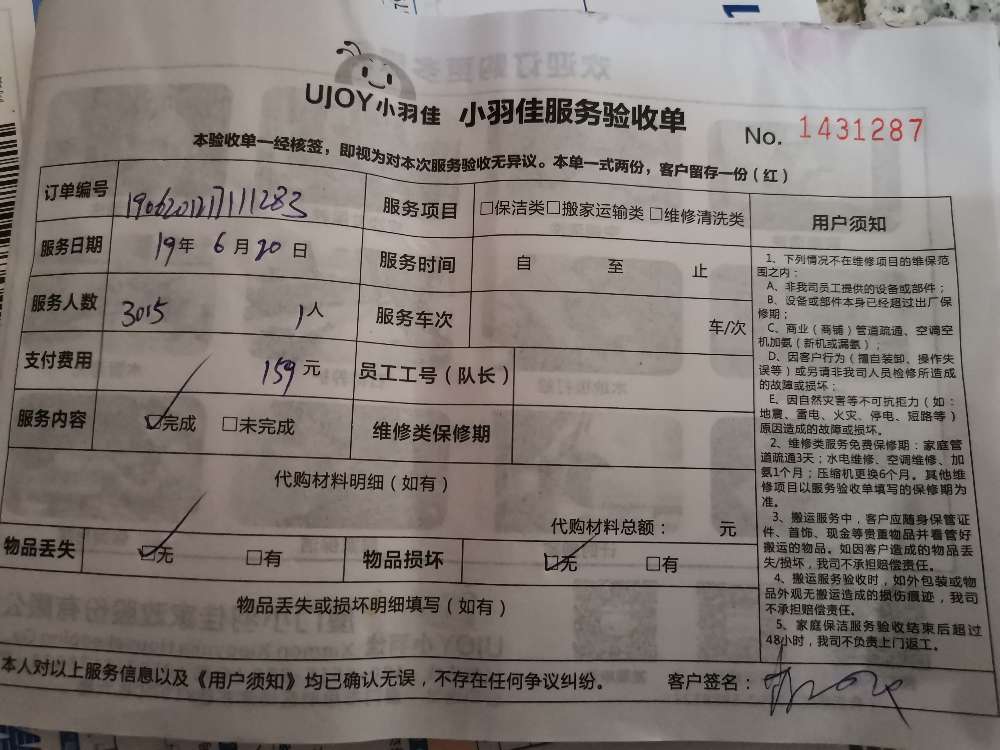 UJOY小羽佳 小羽佳服务验收单
No. 1431287
本验收单一经核签，即视为对本次服务验收无异议。本单一式两份，客户留存一份（红）
订单编号 服务项目 □保洁类□搬家运输类 □维修清洗类
服务日期 19年 6月20日 服务时间 自 至 止
服务人数 3015 1人 服务车次 车/次
支付费用 159元 员工工号（队长）
服务内容 ☑完成 □未完成 维修类保修期
代购材料明细（如有）
代购材料总额： 元
物品丢失 ☑无 □有 物品损坏 ☑无 □有
物品丢失或损坏明细填写（如有）
用户须知
1、下列情况不在维修项目的维保范
围之内：
A、非我司员工提供的设备或部件；
B、设备或部件本身已经超过出厂保
修期；
C、商业（商铺）管道疏通、空调空
机加氨（新机或漏氨）；
D、因客户行为（擅自装卸、操作失
误等）或另请非我司人员检修所造成
的故障或损坏；
E、因自然灾害等不可抗拒力（如：
地震、雷电、火灾、停电、短路等）
原因造成的故障或损坏。
2、维修类服务免费保修期：家庭管
道疏通3天；水电维修、空调维修、加
氨1个月；压缩机更换6个月。其他维
修项目以服务验收单填写的保修期为
准。
3、搬运服务中，客户应随身保管证
件、首饰、现金等贵重物品并看管好
搬运的物品。如因客户造成的物品丢
失/损坏，我司不承担赔偿责任。
4、搬运服务验收时，如外包装或物
品外观无搬运造成的损伤痕迹，我司
不承担赔偿责任。
5、家庭保洁服务验收结束后超过
48小时，我司不负责上门返工。
本人对以上服务信息以及《用户须知》均已确认无误，不存在任何争议纠纷。 客户签名：